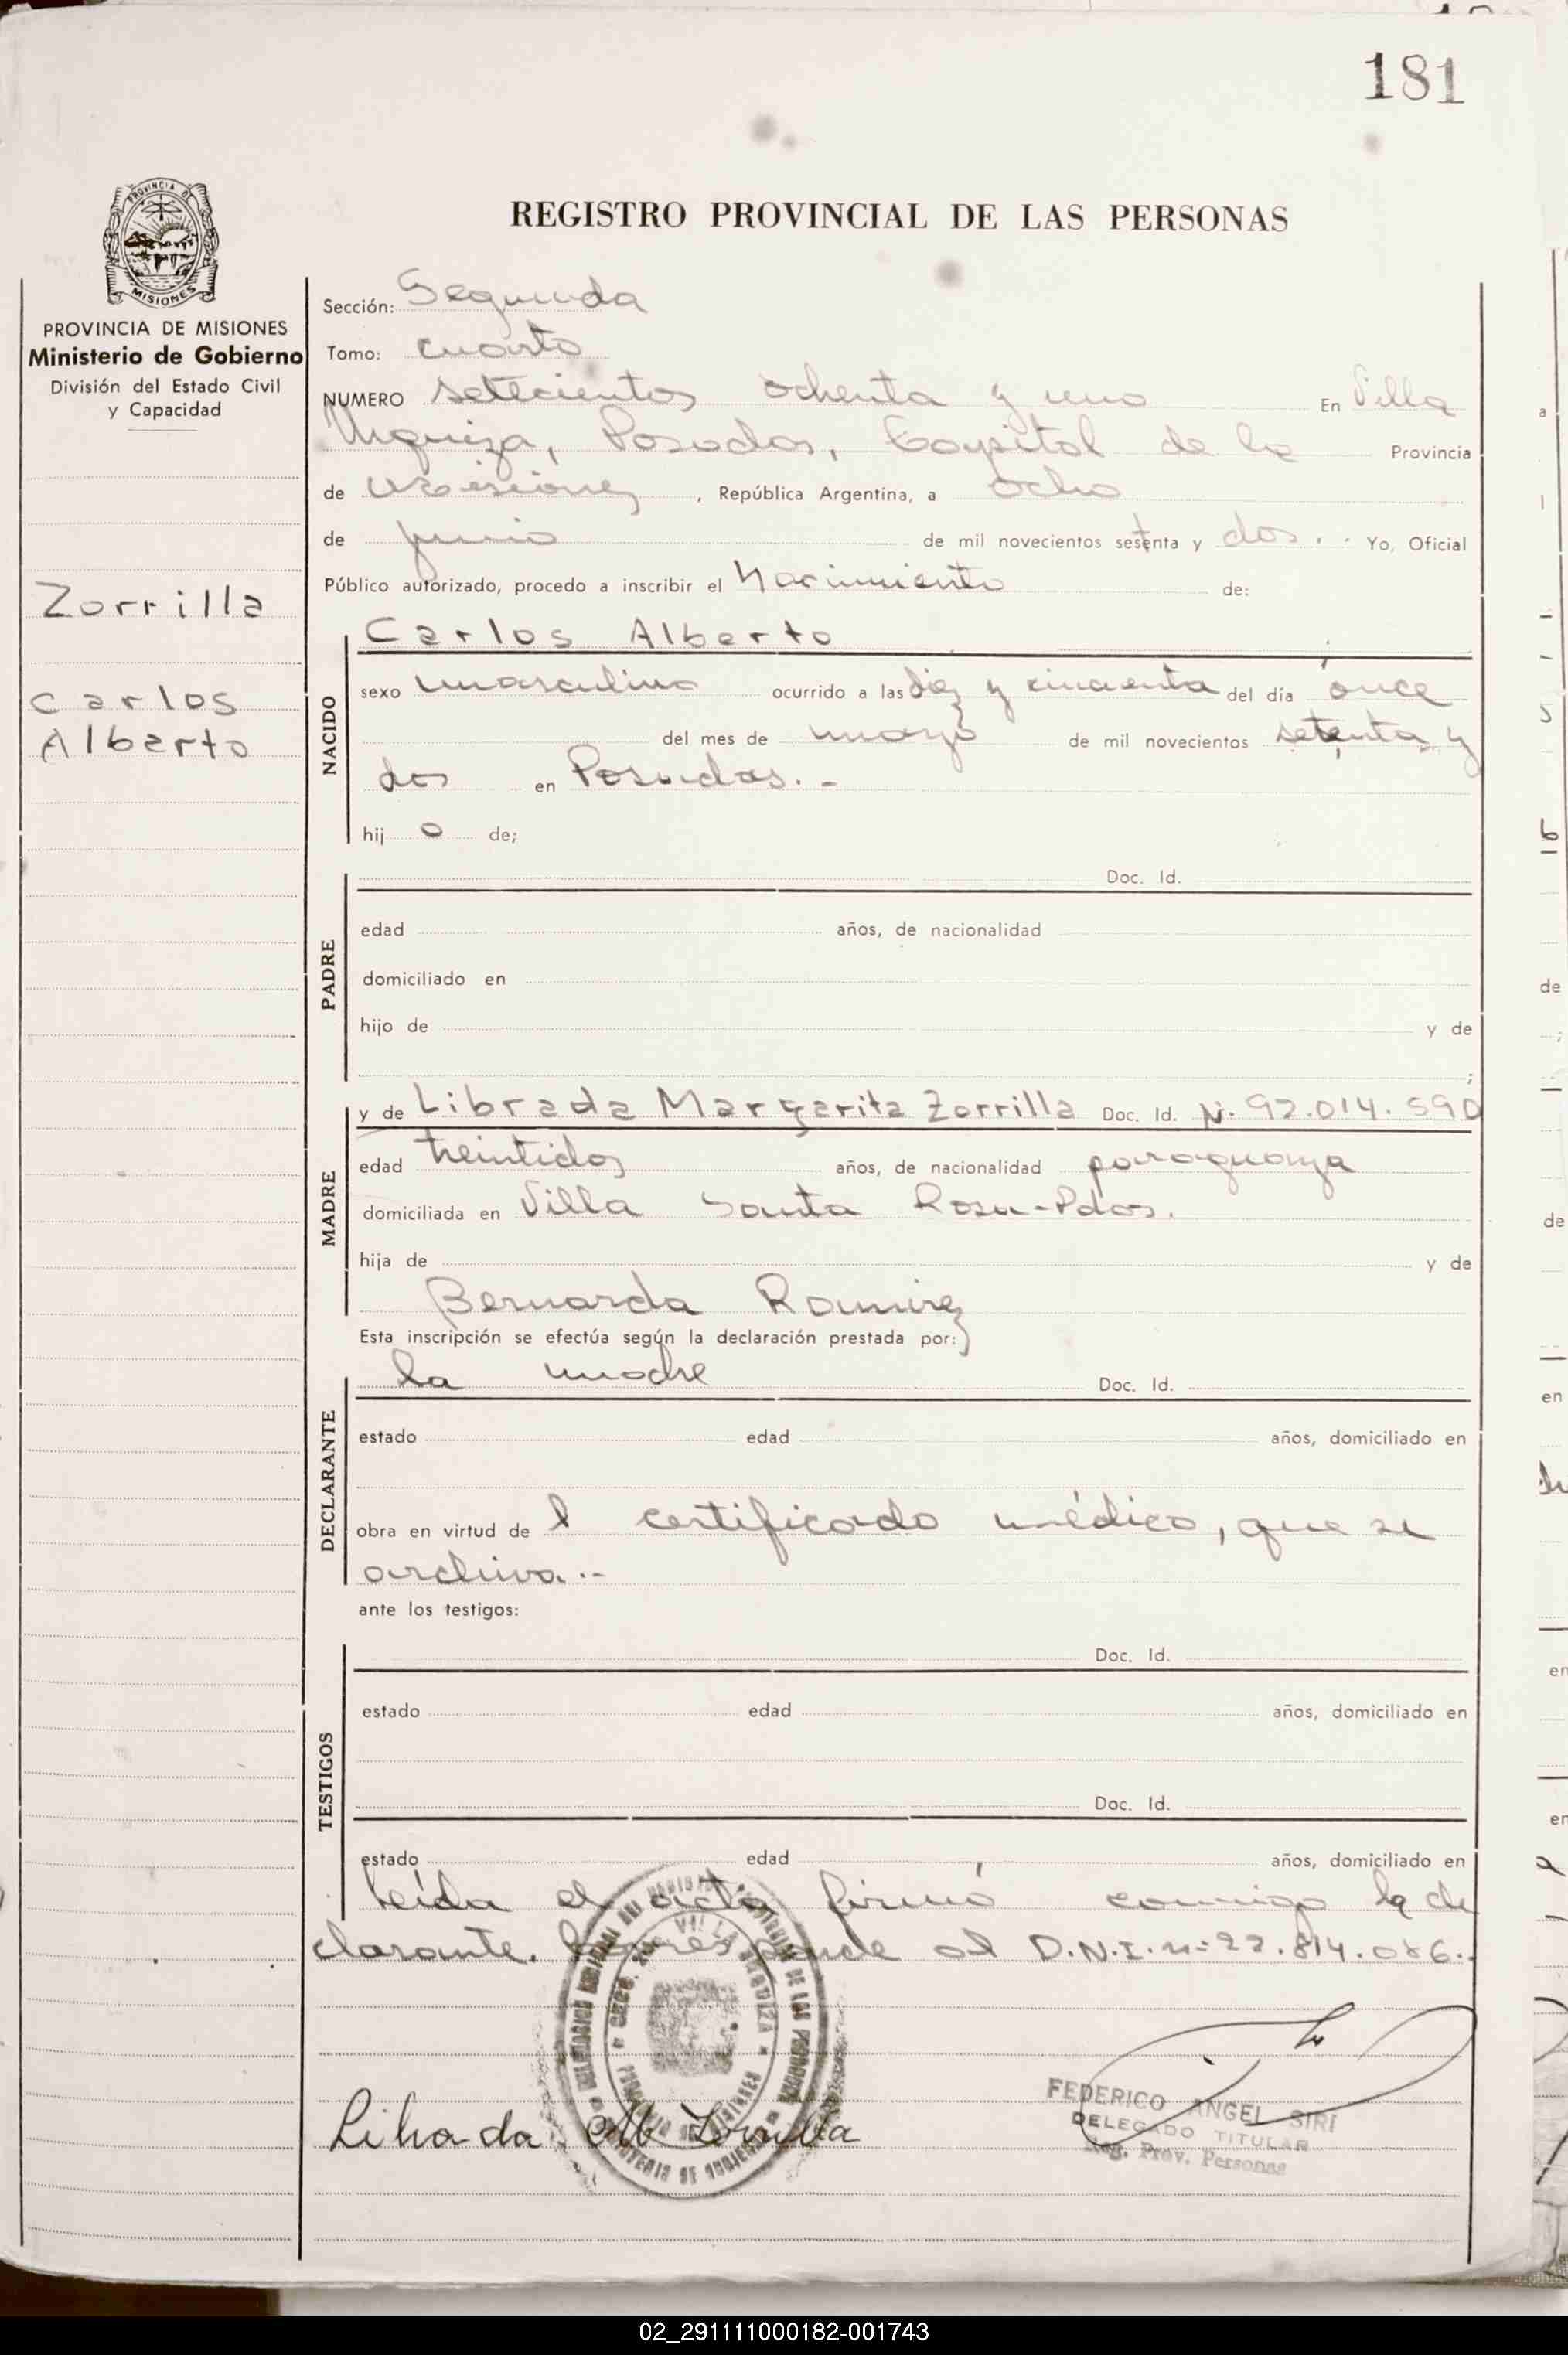 181
REGISTRO PROVINCIAL DE LAS PERSONAS
PROVINCIA DE MISIONES
MISIONES
PROVINCIA DE MISIONES
Ministerio de Gobierno
División del Estado Civil
y Capacidad
Zorrilla
Carlos
Alberto
Sección: Segunda
Tomo: cuarto
NUMERO setecientos ochenta y uno En Villa
Urquiza, Posadas, Capital de la Provincia
de Misiones, República Argentina, a ocho
de junio de mil novecientos setenta y dos.- Yo, Oficial
Público autorizado, procedo a inscribir el Nacimiento de:
Carlos Alberto
NACIDO
sexo masculino ocurrido a las diez y cincuenta del día once
del mes de de mil novecientos setenta y
dos en Posadas.-
hijo de;
PADRE
Doc. Id.
edad años, de nacionalidad
domiciliado en
hijo de y de
;
MADRE
y de Librada Margarita Zorrilla Doc. Id. Nº 92.014.590
edad treintidos años, de nacionalidad paraguaya
domiciliada en Villa Santa Rosa-Pdas.
hija de y de
Bernarda Ramirez
Esta inscripción se efectúa según la declaración prestada por:
DECLARANTE
la madre Doc. Id.
estado edad años, domiciliado en
obra en virtud de l certificado médico, que se
archiva.--
ante los testigos:
TESTIGOS
Doc. Id.
estado edad años, domiciliado en
Doc. Id.
estado edad años, domiciliado en
Leída el acta firmó conmigo la de
clarante. Corresponde al D.N.I. nº 22.814.086.-
Librada M Zorrilla
FEDERICO ANGEL SIRI
DELEGADO TITULAR
Reg. Prov. Personas
02_291111000182-001743